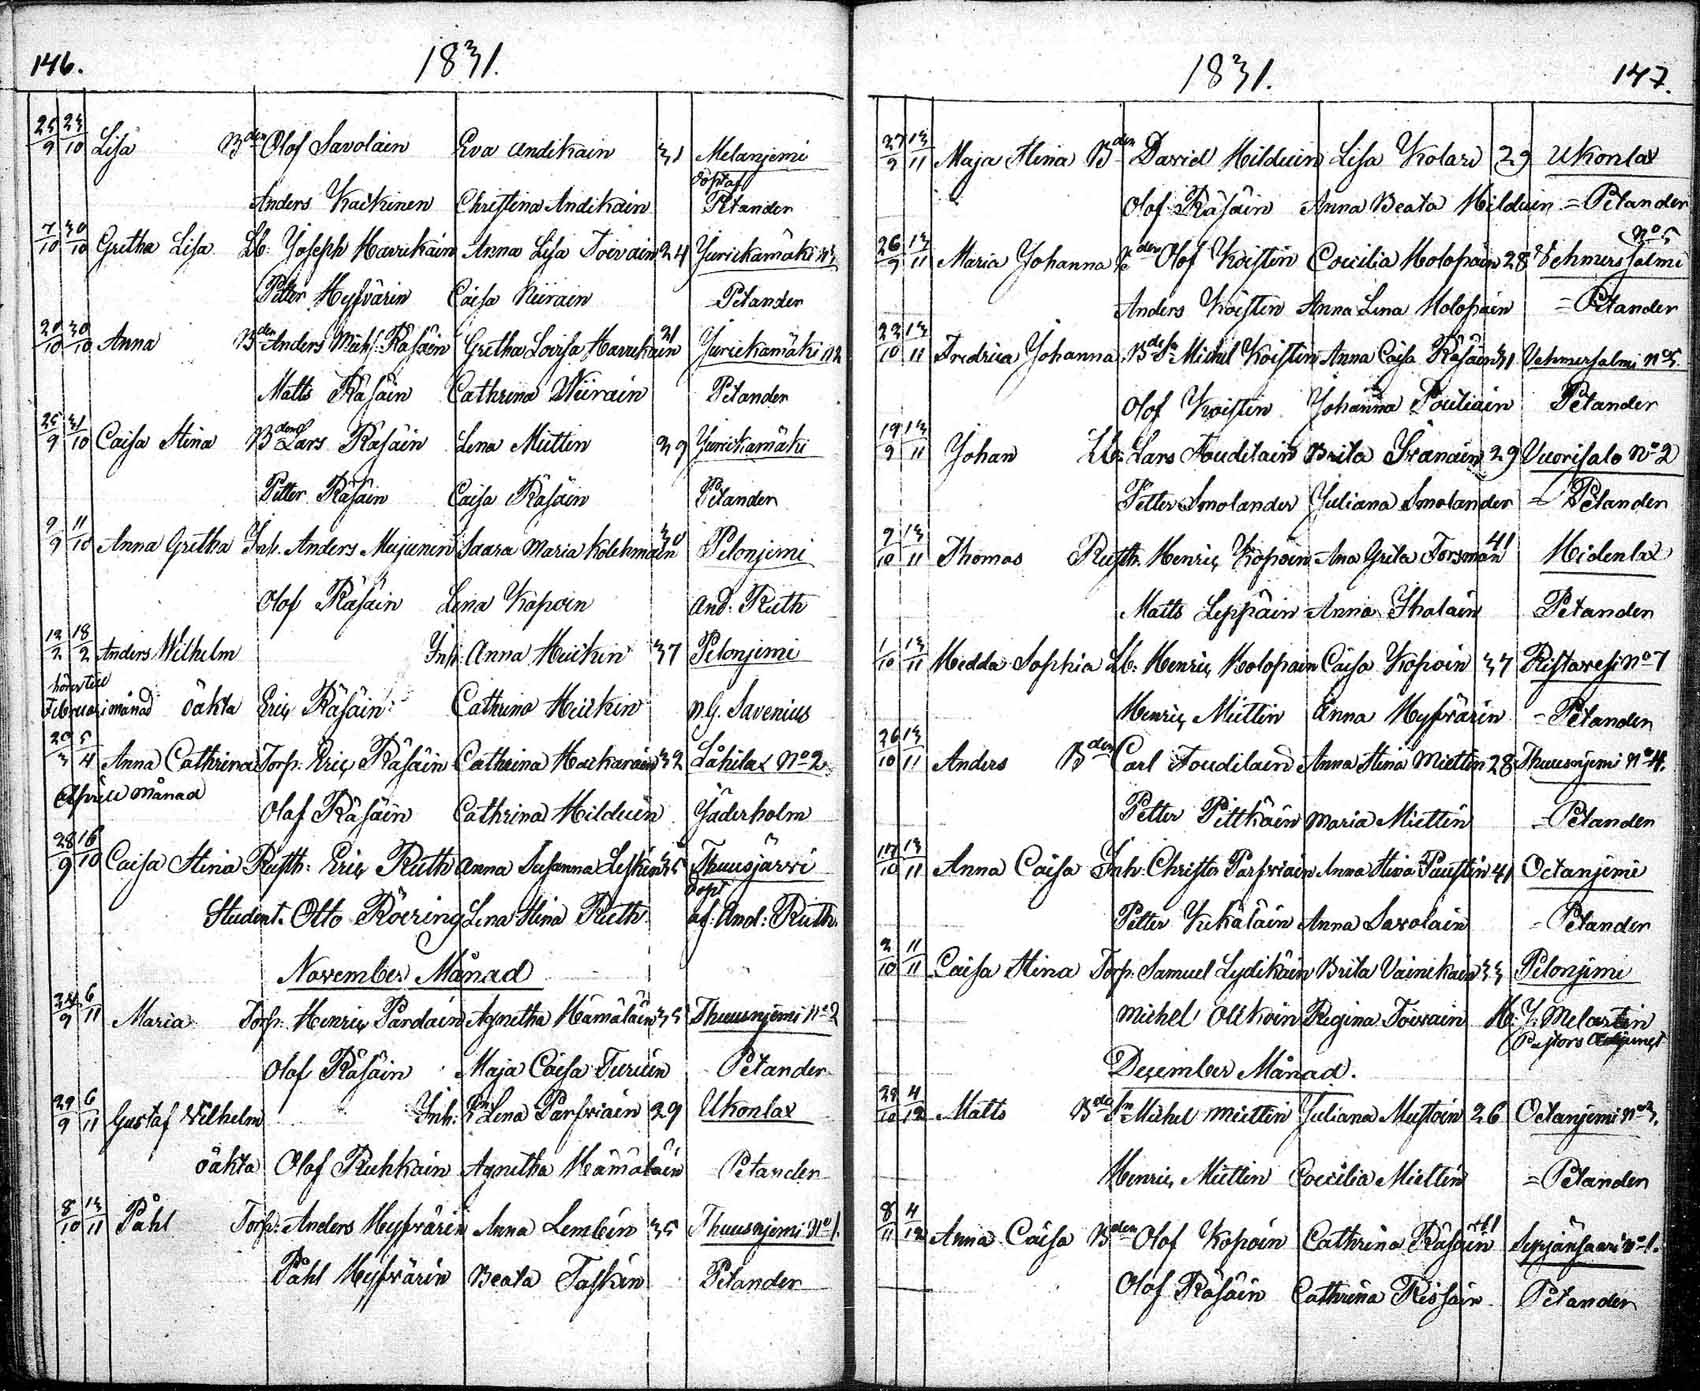 146.
1831.
25/9 23/10 Lisa Bden Olof Savolain Eva Andikain 31 Melanjemi
döpt af
Anders Kaikinen Christina Andikain Petander
7/10 30/10 Gretha Lisa Lb: Joseph Havukain Anna Lisa Toivain 24 Jurickamäki
Petter Hyfvärin Caisa Niirain Petander
20/10 30/10 Anna Bden Anders Mich: Räsäin Gretha Lovisa Havukain 21 Jurickamäki N2
Matts Räsäin Cathrina Niirain Petander
25/9 31/10 Caisa Stina Lars Räsäin Lena Miettin 39 Jurickamäki
Petter Räsäin Caisa Räsäin Petander
9/9 11/10 Anna Gretha Inh. Anders Mujunen Saara Maria Kolehmain 30 Pelonjemi
Olof Räsäin Lena Kopoin And: Ruth
12/2 18/2 Anders Wilhelm Inh: Anna Heickin 37 Pelonjemi
hörer till
Februari månad oäkta Eric Räsäin Cathrina Heickin N.G. Savenius
20/3 5/4 Anna Cathrina Torp: Eric Räsäin Cathrina Hackarain 32 Låhilax No 2
Aprill månad
Olof Räsäin Cathrina Hilduin Jäderholm
28/9 16/10 Caisa Stina Rusth: Eric Ruth Anna Susanna Leskin 35 Thuusjärvi
döpt
Student. Otto Roering Lena Stina Ruth af: And: Ruth
November Månad
24/9 6/11 Maria Torp: Henric Pardain Agnetha Hämäläin 35 Thuusnjemi No 2
Olof Räsäin Maja Caisa Turuin Petander
29/9 6/11 Gustaf Wilhelm Inh: Lena Parfviain 29 Ukonlax
oäkta Olof Ruhkain Agnetha Hämäläin Petander
8/10 13/11 Påhl Torp: Anders Hyfvärin Anna Lembin 35 Thuusnjemi No 1.
Påhl Hyfvärin Beata Taskin Petander
1831.
147.
27/9 13/11 Maja Stina Bden David Hilduin Lisa Kolari 29 Ukonlax
Olof Räsäin Anna Beata Hilduin = Petander
No 5
26/9 13/11 Maria Johanna Bden Olof Koistin Coecilia Holopain 28 Vehmersalmi
Anders Koistin Anna Lena Holopain = Petander
22/10 13/11 Fredrica Johanna Bde Sn Michel Koistin Anna Caisa Räsäin 31 Vehmersalmi No 5.
Olof Koistin Johanna Poutiain Petander
19/9 13/11 Johan Lb: Lars Toudilain Brita Iivanain 29 Vuorisalo No 2
Petter Smolander Juliana Smolander = Petander
9/10 13/11 Thomas Rusth. Henric Kopoin Ana Greta Forsman 41 Hidenlax
Matts Leppäin Anna Ihalain Petander
1/10 13/11 Hedda Sophia Lb. Henric Holopain Caisa Kopoin 37 Ristavesi No 7
Henric Miettin Anna Hyfvärin - Petander
26/10 13/11 Anders Bden Carl Toudilain Anna Stina Miettin 28 Thuusnjemi No 4.
Petter Pitkäin Maria Miettin - Petander
17/10 13/11 Anna Caisa Inh: Christer Parfviain Anna Stina Puustin 41 Octanjemi
Petter Kukäläin Anna Savolain - Petander
2/10 11/11 Caisa Stina Torp: Samuel Lydikäin Brita Vainikain 33 Pelonjemi
Michel Olikoin Regina Toivain H: J: Melartin
Pastors Adjunct
December Månad.
29/10 4/12 Matts Bde Sn Michel Miettin Juliana Mustoin 26 Octanjemi No 3.
Henric Miettin Coecilia Miettin = Petander
8/11 4/12 Anna Caisa Bden Olof Kopoin Cathrina Räsäin 41 Sepjänsaari No 1.
Olof Räsäin Cathrina Rissain Petander